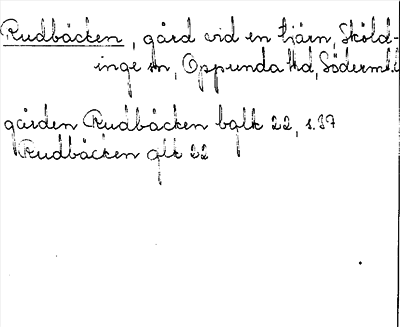 Rudbäcken, gård vid en tjärn, Sköld-
inge sn, Oppunda hd, Söderml.
gården Rudbäcken bglk 22, s.37
Rudbäcken glk 22